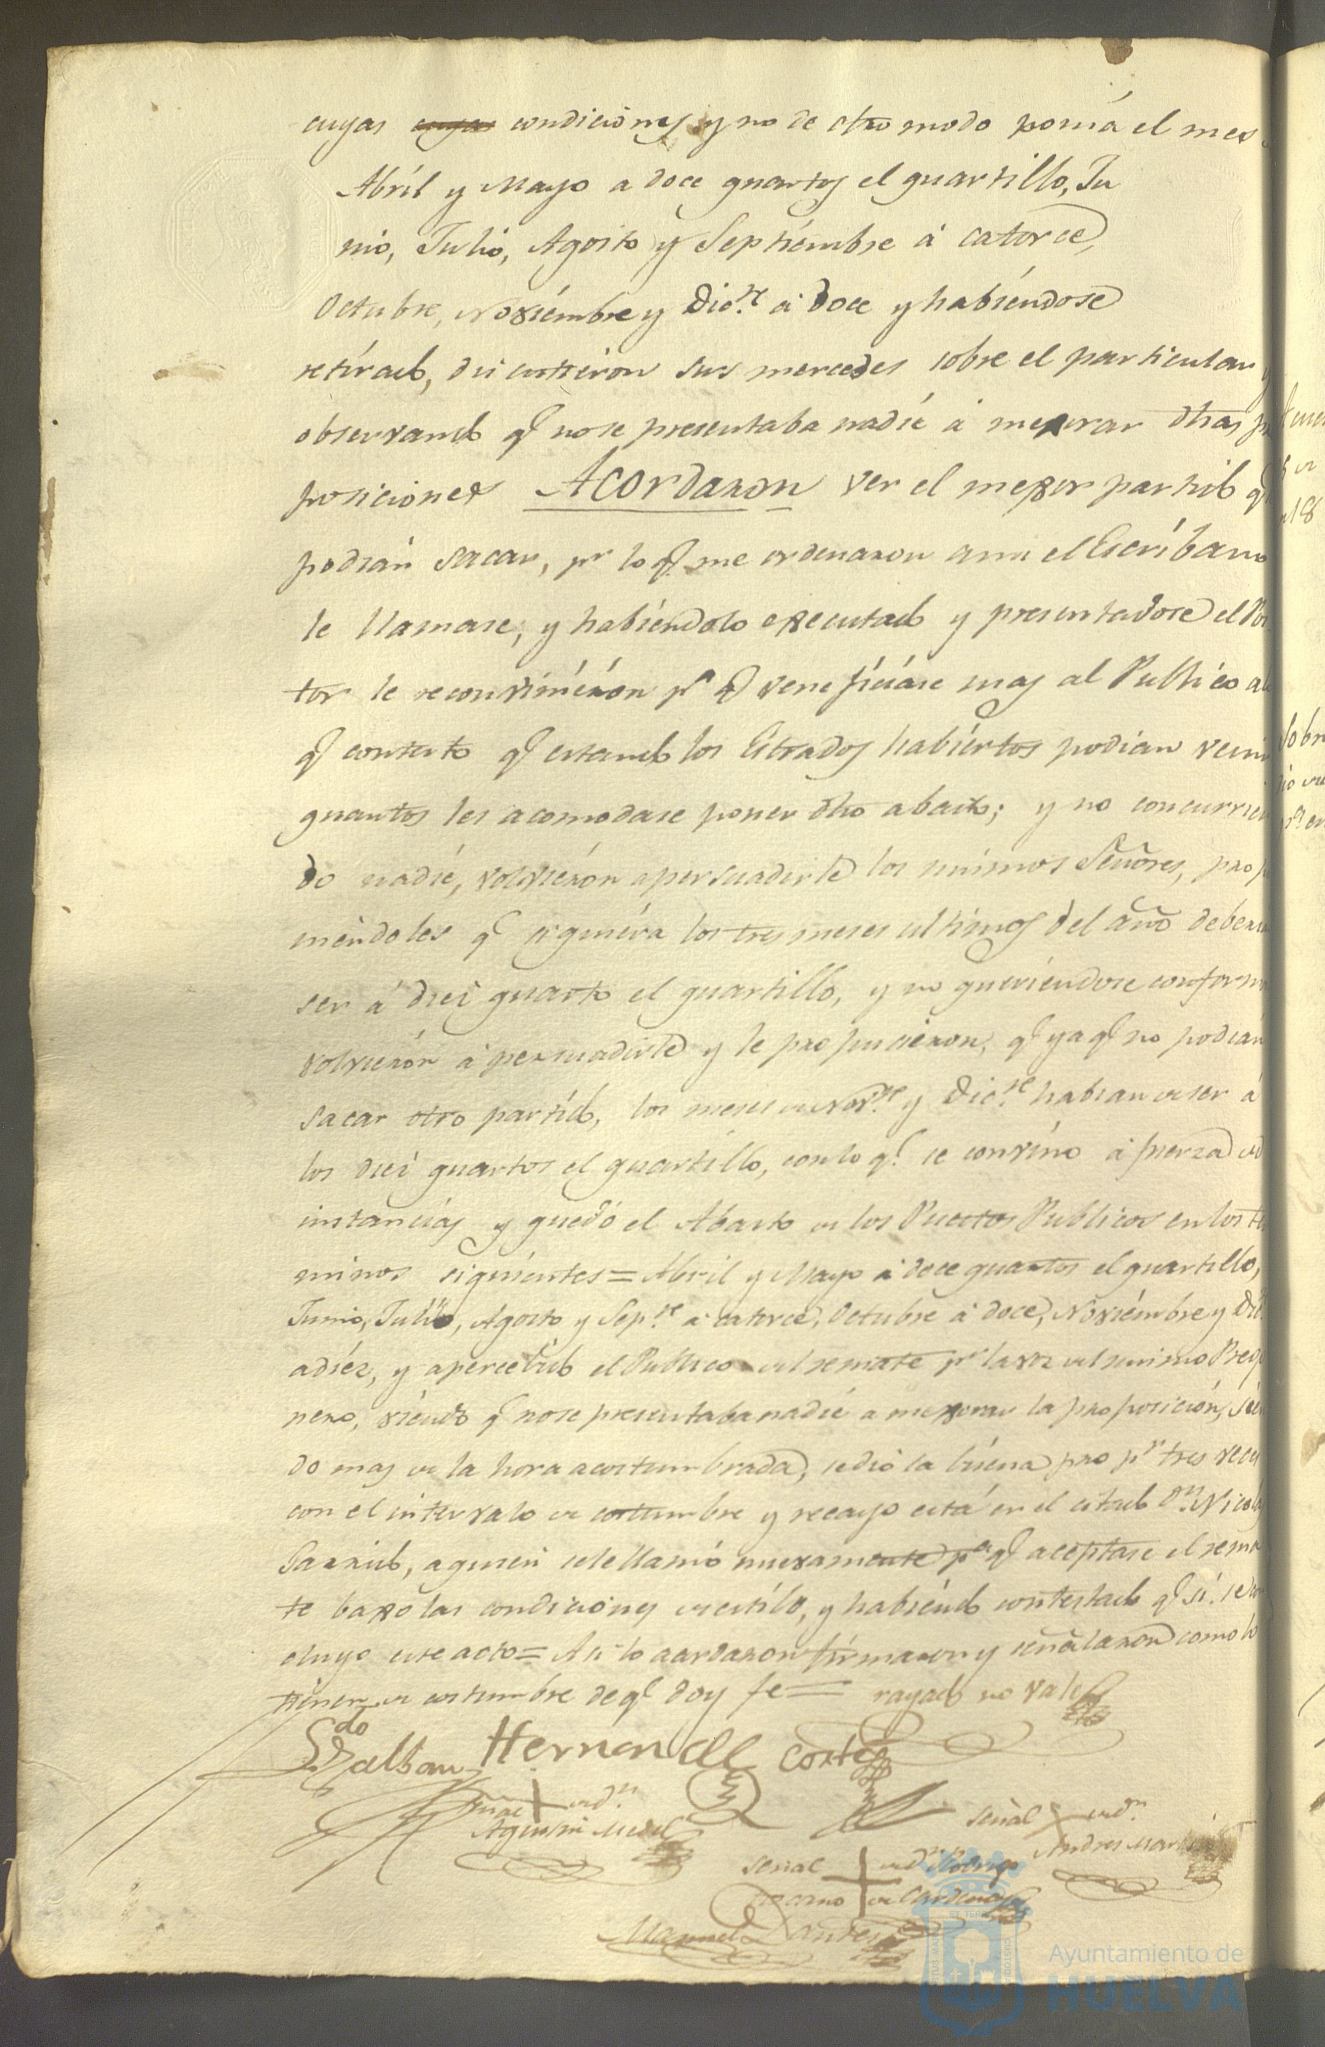 cuyas cuyas condiciones y no de otro modo ponia el mes
Abril y Mayo a doce quartos el quartillo, Ju
nio, Julio, Agosto y Septiembre á catorce,
Octubre, Noviembre y Dic.re á doce y habiendose
retirado, discutieron sus mercedes sobre el particular y
observando q.e no se presentaba nadie á mexorar dhas pro
posiciones Acordaron ver el mexor partido q.e
podian sacar, pr lo q.e me ordenaron a mi el Escribano
le llamase, y habiendolo executado y presentadose el Pos
tor le reconvinieron pa q.e veneficiase mas al Publico a lo
q.e contesto q.e estando los Estrados habiertos podian venir
quantos les acomodase poner dho abasto; y no concurrien
do nadie, volvieron a persuadirle los mismos Señores, propo
niendoles q.e siquiera los tres meses ultimos del año deberian
ser á diez quartos el quartillo, y no queriendose conformar
volvieron á persuadirle y le propusieron, q.e ya q.e no podian
sacar otro partido, los meses de Nov.re y Dic.re habian de ser á
los diez quartos el quartillo, con lo q.e se convino á fuerza de
instancias y quedó el Abasto de los Puestos Publicos en los ter
minos siguientes = Abril y Mayo á doce quartos el quartillo,
Junio, Julio, Agosto y Sep.re á catorce, Octubre á doce, Noviembre y Dic.re
a diez, y apercebido el Publico del remate pr la voz del mismo Prego
nero, viendo q.e no se presentaba nadie a mexorar la proposicion, sien
do mas de la hora acostumbrada, se dió la buena pro pr tres veces
con el intervalo de costumbre y recayo esta en el citado Dn. Nicolas
Garrido, a quien se le llamó nuevamente pa q.e aceptase el rema
te baxo las condiciones de estilo, y habiendo contestado q.e si, se con
cluyo este acto = Asi lo acordaron firmaron y señalaron como lo
tienen de costumbre de q.e doy fe = rayado no vale
Ldo Zalban Hernandez Cortes
señal de Dn.
Agustin Medel
señal de Dn.
Andres Martin
señal de Dn Rodrigo
de Cardenas
Manuel
Ayuntamiento de
HUELVA